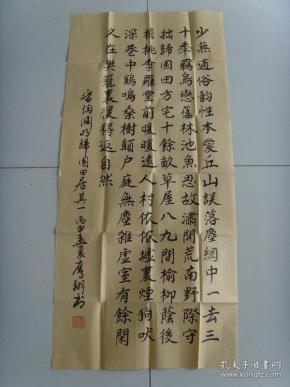 少無適俗韵性本愛丘山誤落塵網中一去三
十年羈鳥戀舊林池魚思故淵開荒南野際守
拙歸園田方宅十餘畝草屋八九間榆柳蔭後
檐桃李羅堂前曖曖遠人村依依墟裏煙狗吠
深巷中鳴桑樹顛户庭無塵雜虛室有餘閑
久在樊籠裏復得返自然
晋陶淵明歸園田居其一丙申孟夏
孔夫子旧书网